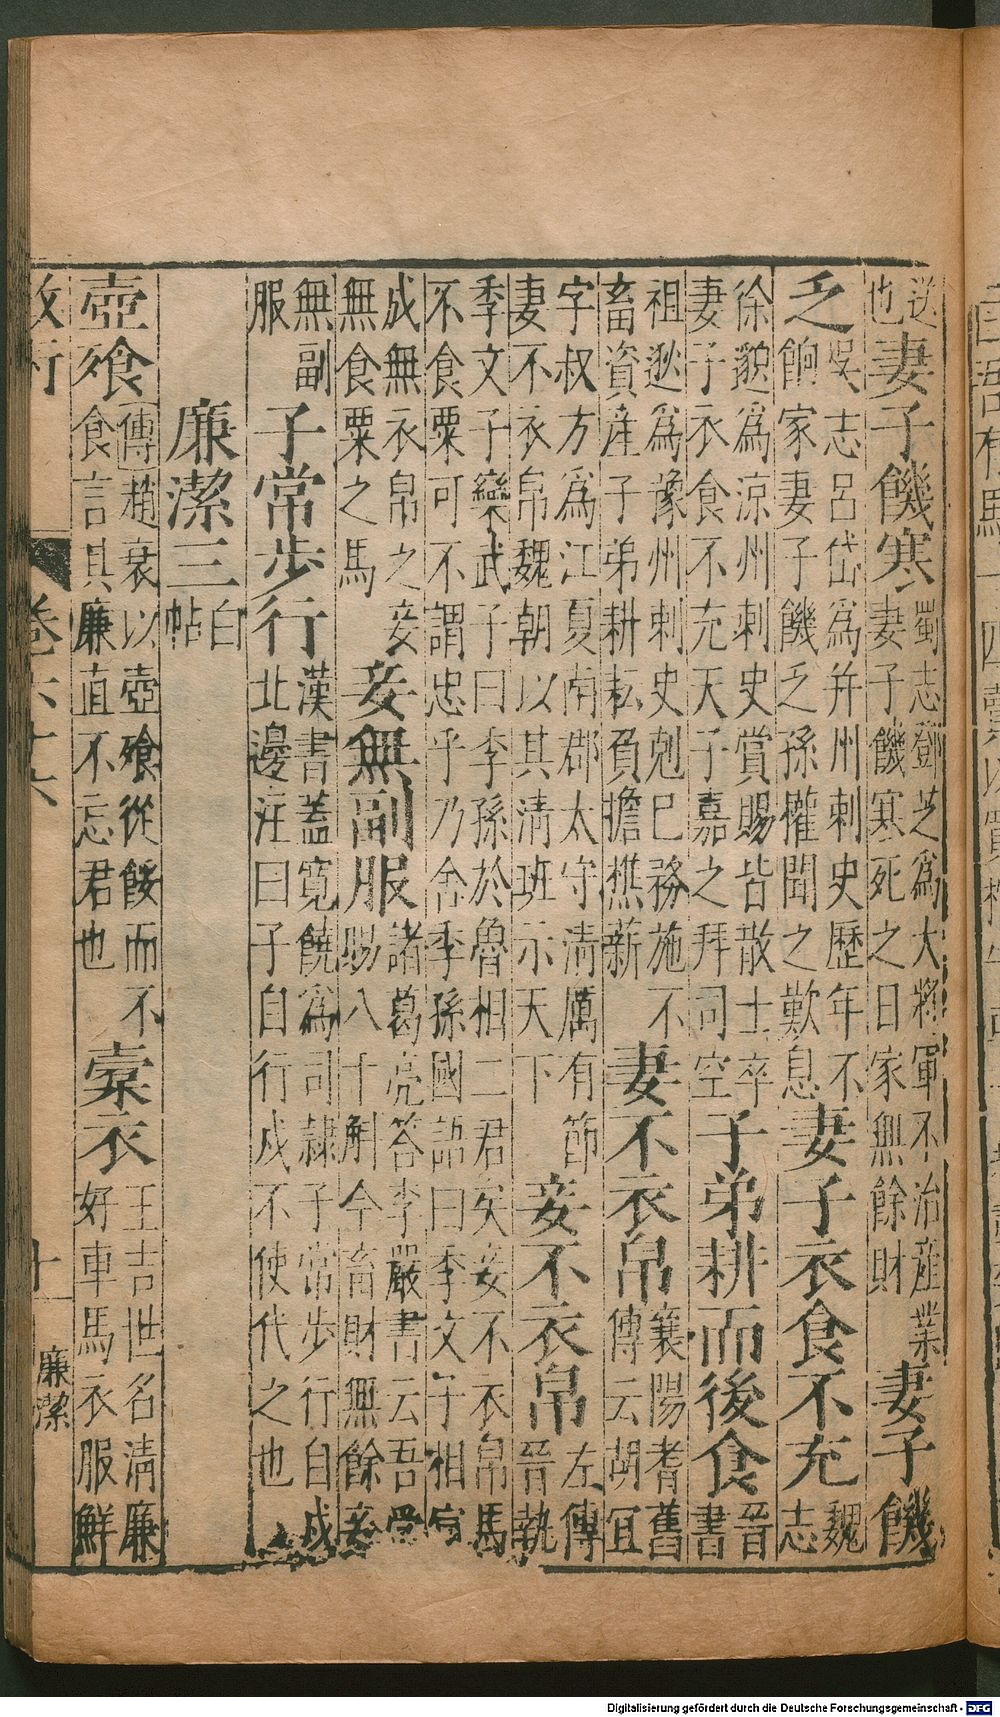 送
也妻子饑寒蜀志鄧芝為大將軍不治產業
妻子饑寒死之日家無餘財妻子饑
乏吳志呂岱為并州刺史歷年不
餉家妻子饑乏孫權聞之歎息妻子衣食不充魏
志
徐邈為涼州刺史賞賜皆散士卒
妻子衣食不充天子嘉之拜司空子弟耕而後食晉
書
祖逖為豫州刺史剋己務施不
畜資產子弟耕耘負擔樵薪妻不衣帛襄陽耆舊
傳云胡冝
字叔方為江夏南郡太守清厲有節
妻不衣帛魏朝以其清班示天下妾不衣帛左傳
晉執
季文子欒武子曰季孫於魯相二君矣妾不衣帛馬
不食粟可不謂忠乎乃舍季孫國語曰季文子相
成無衣帛之妾
無食粟之馬妾無副服諸葛亮荅李嚴書云吾受
賜八十斛今畜財無餘妾
無副
服子常步行漢書蓋寬饒為司隷子常步行自戍
北邊注曰子自行戍不使代之也
廉潔三白
帖
壺飧傳趙衰以壺飧從餒而不
食言其廉直不忘君也橐衣王吉世名清廉
好車馬衣服鮮
政術
卷六十六
十一
廉潔
Digitalisierung gefördert durch die Deutsche Forschungsgemeinschaft - DFG